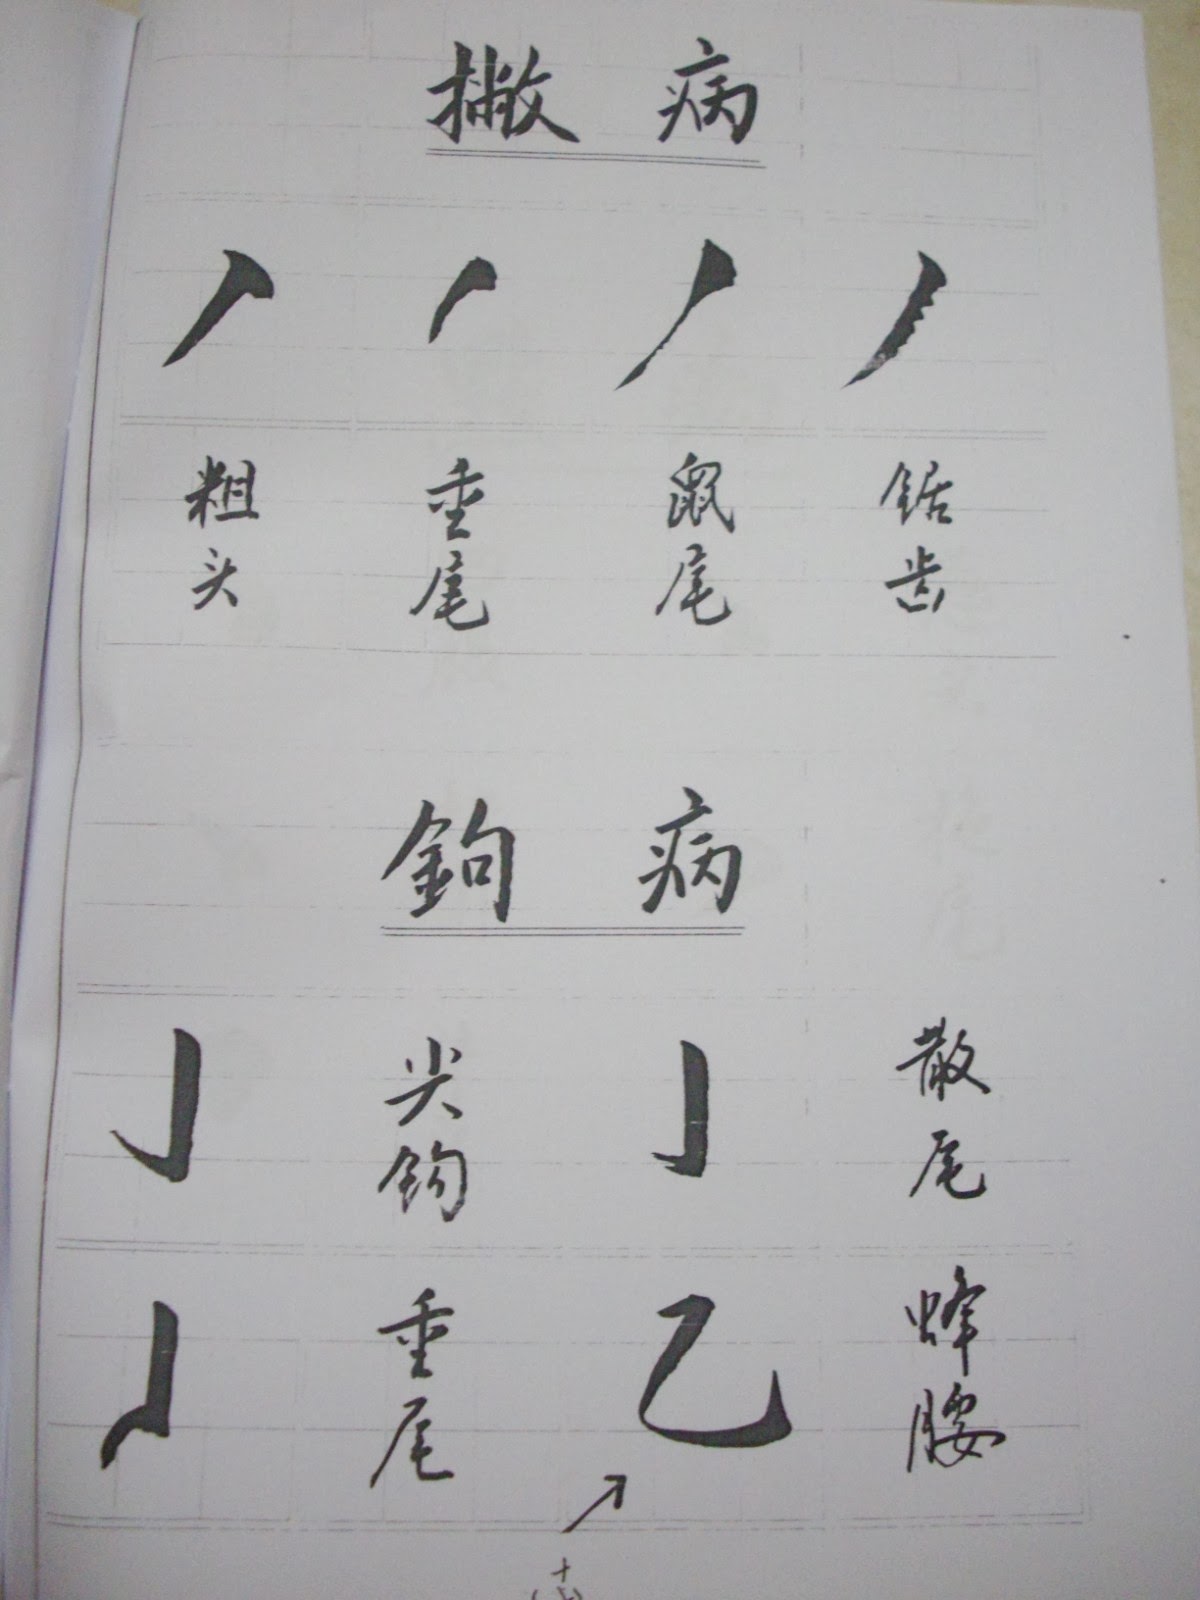 撇病
粗头
垂尾
鼠尾
锯齿
鉤病
尖钩
散尾
垂尾
蜂腰